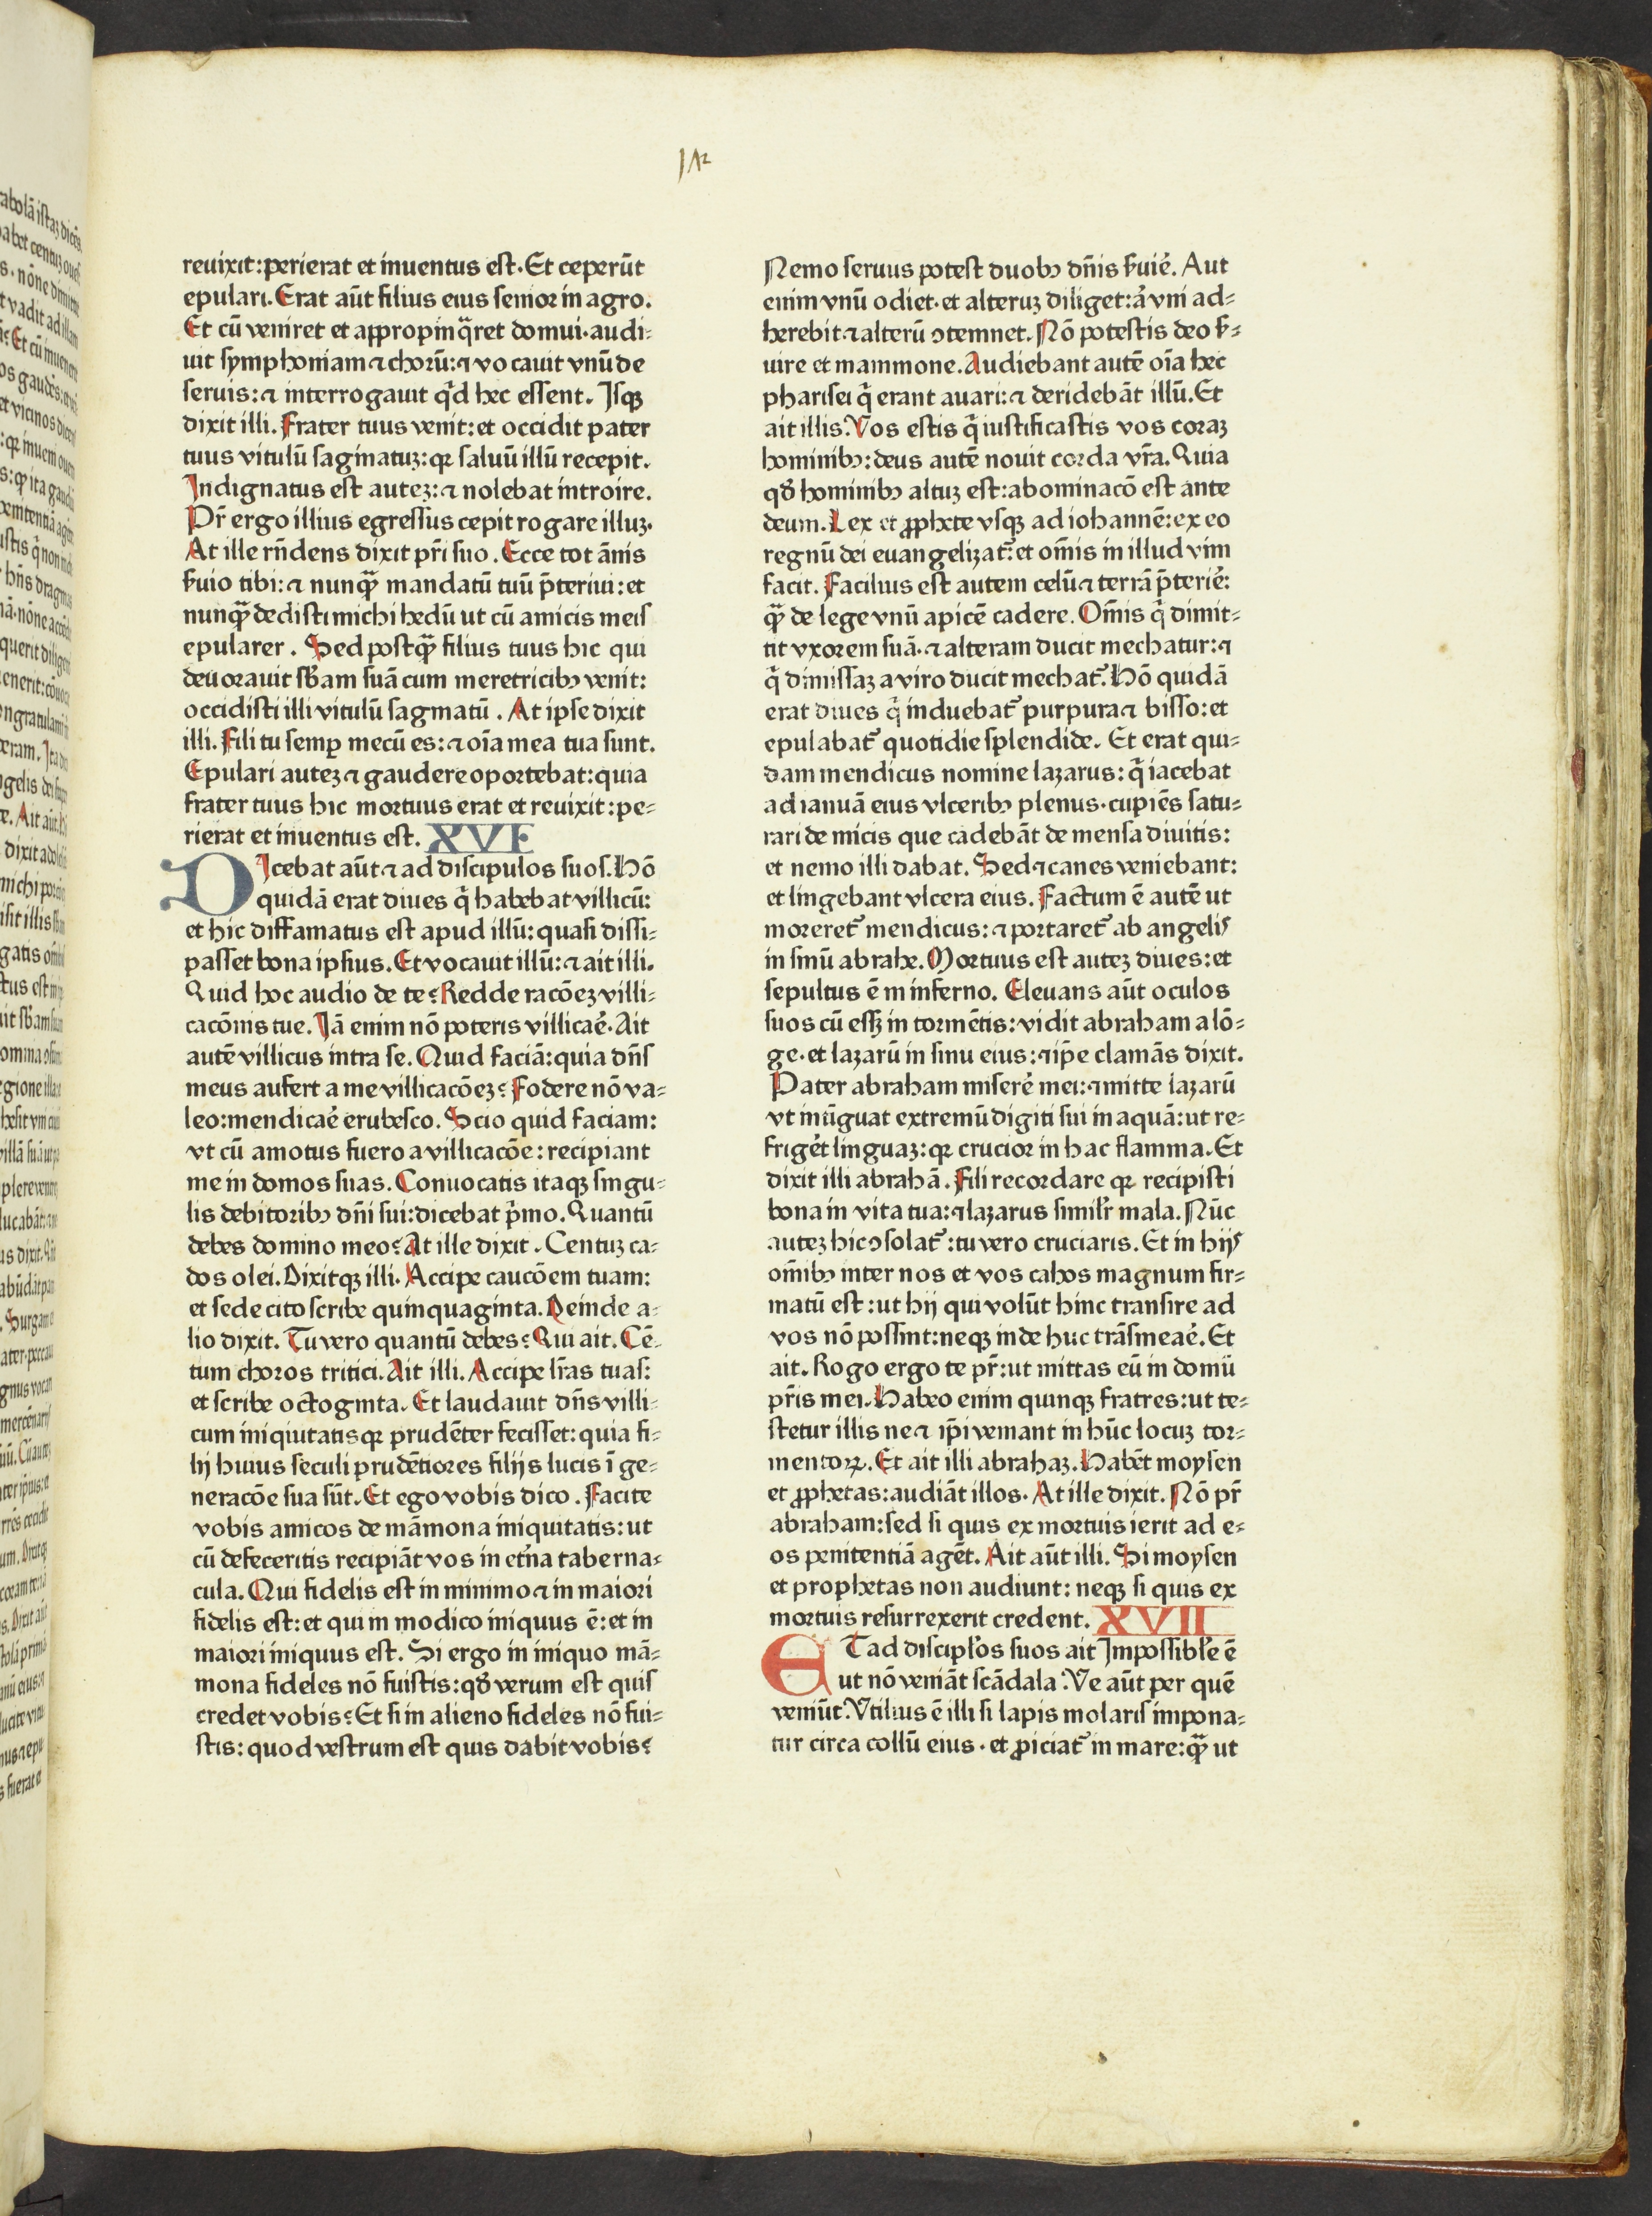 reuixit: perierat et inuentus est. Et ceperūt
epulari. Erat aūt filius eius senior in agro.
Et cū veniret et appropinq̄ret domui. audi⸗
uit symphoniam ⁊ chorū: ⁊ vocauit vnū de
seruis: ⁊ interrogauit qͥd hec essent. Isqꝫ
dixit illi. Frater tuus venit: et occidit pater
tuus vitulū saginatuꝫ: qꝛ saluū illū recepit.
Indignatus est auteꝫ: ⁊ nolebat introire.
Pr̄ ergo illius egressus cepit rogare illuꝫ.
At ille rn̄dens dixit pr̄i suo. Ecce tot ānis
ẜuio tibi: ⁊ nunqꝫ̄ mandatū tuū p̄teriui: et
nunqꝫ̄ dedisti michi hedū ut cū amicis meis
epularer. Sed postqꝫ̄ filius tuus hic qui
deuorauit sb̄am suā cum meretricibꝫ venit:
occidisti illi vitulū saginatū. At ipse dixit
illi. Fili tu semꝑ mecū es: ⁊ oīa mea tua sunt.
Epulari auteꝫ ⁊ gaudere oportebat: quia
frater tuus hic mortuus erat et reuixit: pe⸗
rierat et inuentus est. XVI
DIcebat aūt ⁊ ad discipulos suos. Hō
quidā erat diues qͥ habebat villicū:
et hic diffamatus est apud illū: quasi dissi⸗
passet bona ipsius. Et vocauit illū: ⁊ ait illi.
Quid hoc audio de te? Redde racōeꝫ villi⸗
cacōnis tue. Iā enim nō poteris villicaē. Ait
autē villicus intra se. Quid faciā: quia dn̄s
meus aufert a me villicacōeꝫ? Fodere nō va⸗
leo: mendicaē erubesco. Scio quid faciam:
vt cū amotus fuero a villicacōe: recipiant
me in domos suas. Conuocatis itaqꝫ singu⸗
lis debitoribꝫ dn̄i sui: dicebat pͥmo. Quantū
debes domino meo? At ille dixit. Centuꝫ ca⸗
dos olei. Dixitqꝫ illi. Accipe caucōem tuam:
et sede cito scribe quinquaginta. Deinde a⸗
lio dixit. Tu vero quantū debes? Qui ait. Cē⸗
tum choros tritici. Ait illi. Accipe lr̄as tuas:
et scribe octoginta. Et laudauit dn̄s villi⸗
cum iniquitatis qꝛ prudēter fecisset: quia fi⸗
lij huius seculi prudētiores filijs lucis ī ge⸗
neracōe sua sūt. Et ego vobis dico. Facite
vobis amicos de māmona iniquitatis: ut
cū defeceritis recipiāt vos in et̄na taberna⸗
cula. Qui fidelis est in minimo ⁊ in maiori
fidelis est: et qui in modico iniquus ē: et in
maiori iniquus est. Si ergo in iniquo mā⸗
mona fideles nō fuistis: qđ verum est quis
credet vobis? Et si in alieno fideles nō fui⸗
stis: quod vestrum est quis dabit vobis?
Nemo seruus potest duobꝫ dn̄is ẜuiē. Aut
enim vnū odiet. et alteruꝫ diliget: aͥ vni ad⸗
herebit. ⁊ alterū ꝯtemnet. Nō potestis deo ẜ⸗
uire et mammone. Audiebant autē oīa hec
pharisei qͥ erant auari: ⁊ deridebāt illū. Et
ait illis. Vos estis qͥ iustificastis vos coraꝫ
hominibꝫ: deus autē nouit corda vr̄a. Quia
qđ hominibꝫ altuꝫ est: abominacō est ante
deum. Lex et ꝓphete vsqꝫ ad iohannē: ex eo
regnū dei euangelizat᷑: et om̄is in illud vim
facit. Facilius est autem celū ⁊ terrā p̄teriē:
qꝫ̄ de lege vnū apicē cadere. Om̄is qͥ dimit⸗
tit vxorem suā. ⁊ alteram ducit mechatur: ⁊
qͥ dimissaꝫ a viro ducit mechat᷑. Hō quidā
erat diues qͥ induebat᷑ purpura ⁊ bisso: et
epulabat᷑ quotidie splendide. Et erat qui⸗
dam mendicus nomine lazarus: qͥ iacebat
ad ianuā eius vlceribꝫ plenus. cupiēs satu⸗
rari de micis que cadebāt de mensa diuitis:
et nemo illi dabat. Sed ⁊ canes veniebant:
et lingebant vlcera eius. Factum ē autē ut
moreret᷑ mendicus: ⁊ portaret᷑ ab angelis
in sinū abrahe. Mortuus est auteꝫ diues: et
sepultus ē in inferno. Eleuans aūt oculos
suos cū essꝫ in tormētis: vidit abraham a lō⸗
ge. et lazarū in sinu eius: ⁊ ip̄e clamās dixit.
Pater abraham miserē mei: ⁊ mitte lazarū
vt intīguat extremū digiti sui in aquā: ut re⸗
friget̄ linguaꝫ: qꝛ crucior in hac flamma. Et
dixit illi abrahā. Fili recordare qꝛ recipisti
bona in vita tua: ⁊ lazarus similr̄ mala. Nūc
auteꝫ hic ꝯsolat᷑: tu vero cruciaris. Et in hijs
om̄ibꝫ inter nos et vos cahos magnum fir⸗
matū est: ut hij qui volūt hinc transire ad
vos nō possint: neqꝫ inde huc trāsmeaē. Et
ait. Rogo ergo te pr̄: ut mittas eū in domū
pr̄is mei. Habeo enim quinqꝫ fratres: ut te⸗
stetur illis ne ⁊ ip̄i veniant in hūc locuꝫ tor⸗
mentoꝝ. Et ait illi abrahaꝫ. Habēt moysen
et ꝓphetas: audiāt illos. At ille dixit. Nō pr̄
abraham: sed si quis ex mortuis ierit ad e⸗
os penitentiā agēt. Ait aūt illi. Si moysen
et prophetas non audiunt: neqꝫ si quis ex
mortuis resurrexerit credent. XVII
ET ad discipl̄os suos ait Impossibl̄e ē
ut nō veniāt scādala. Ve aūt per quē
veniūt. Vtilius ē illi si lapis molaris impona⸗
tur circa collū eius. et ꝓiciat᷑ in mare: qꝫ̄ ut